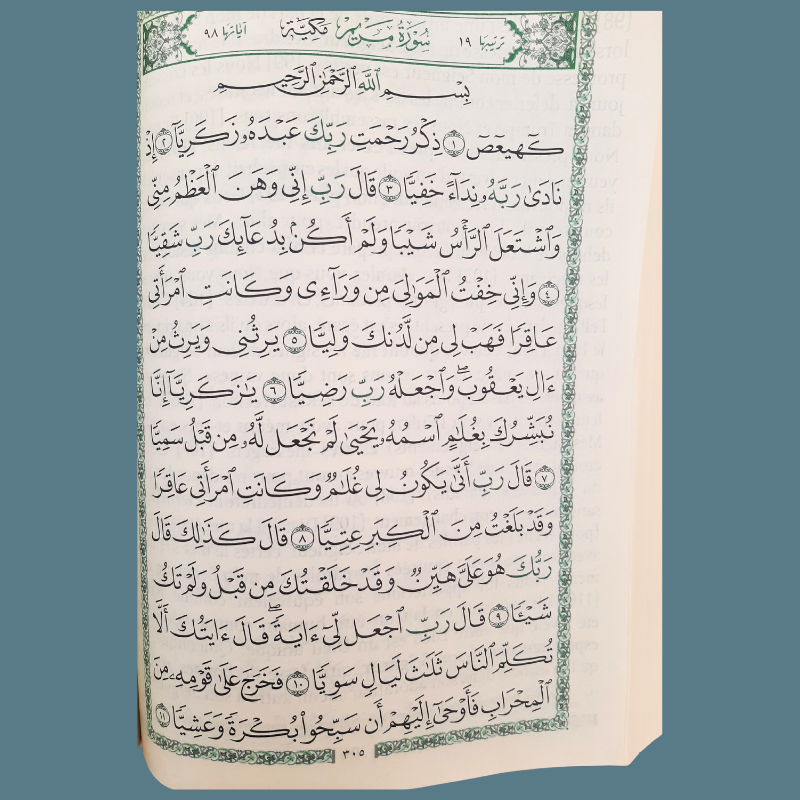 ترتيبها ١٩ سُورَةُ مَرْيَمَ مَكِّيَّة آيَاتهَا ٩٨
بِسْمِ ٱللَّهِ ٱلرَّحْمَٰنِ ٱلرَّحِيمِ
كٓهيعٓصٓ ١ ذِكْرُ رَحْمَتِ رَبِّكَ عَبْدَهُۥ زَكَرِيَّآ ٢ إِذْ
نَادَىٰ رَبَّهُۥ نِدَآءً خَفِيًّا ٣ قَالَ رَبِّ إِنِّي وَهَنَ ٱلْعَظْمُ مِنِّي
وَٱشْتَعَلَ ٱلرَّأْسُ شَيْبًا وَلَمْ أَكُنۢ بِدُعَآئِكَ رَبِّ شَقِيًّا
٤ وَإِنِّي خِفْتُ ٱلْمَوَٰلِيَ مِن وَرَآءِي وَكَانَتِ ٱمْرَأَتِي
عَاقِرًا فَهَبْ لِي مِن لَّدُنكَ وَلِيًّا ٥ يَرِثُنِي وَيَرِثُ مِنْ
ءَالِ يَعْقُوبَۖ وَٱجْعَلْهُ رَبِّ رَضِيًّا ٦ يَٰزَكَرِيَّآ إِنَّا
نُبَشِّرُكَ بِغُلَٰمٍ ٱسْمُهُۥ يَحْيَىٰ لَمْ نَجْعَل لَّهُۥ مِن قَبْلُ سَمِيًّا
٧ قَالَ رَبِّ أَنَّىٰ يَكُونُ لِي غُلَٰمٌ وَكَانَتِ ٱمْرَأَتِي عَاقِرًا
وَقَدْ بَلَغْتُ مِنَ ٱلْكِبَرِ عِتِيًّا ٨ قَالَ كَذَٰلِكَ قَالَ
رَبُّكَ هُوَ عَلَيَّ هَيِّنٌ وَقَدْ خَلَقْتُكَ مِن قَبْلُ وَلَمْ تَكُ
شَيْـًٔا ٩ قَالَ رَبِّ ٱجْعَل لِّي ءَايَةًۖ قَالَ ءَايَتُكَ أَلَّا
تُكَلِّمَ ٱلنَّاسَ ثَلَٰثَ لَيَالٍ سَوِيًّا ١٠ فَخَرَجَ عَلَىٰ قَوْمِهِۦ مِنَ
ٱلْمِحْرَابِ فَأَوْحَىٰٓ إِلَيْهِمْ أَن سَبِّحُوا۟ بُكْرَةً وَعَشِيًّا ١١
٣٠٥